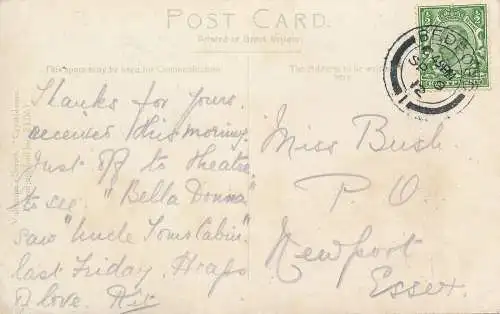 POST CARD.
Printed in Great Britain
This space may be used for Communication
The Address to be written here
Thanks for yours
received this morning.
Just off to theatre
to see "Bella Donna"
saw "Uncle Toms Cabin"
last Friday. Heaps
O love.
Miss Bush
P. O.
Newport
Essex.
BEDFORD
12
1